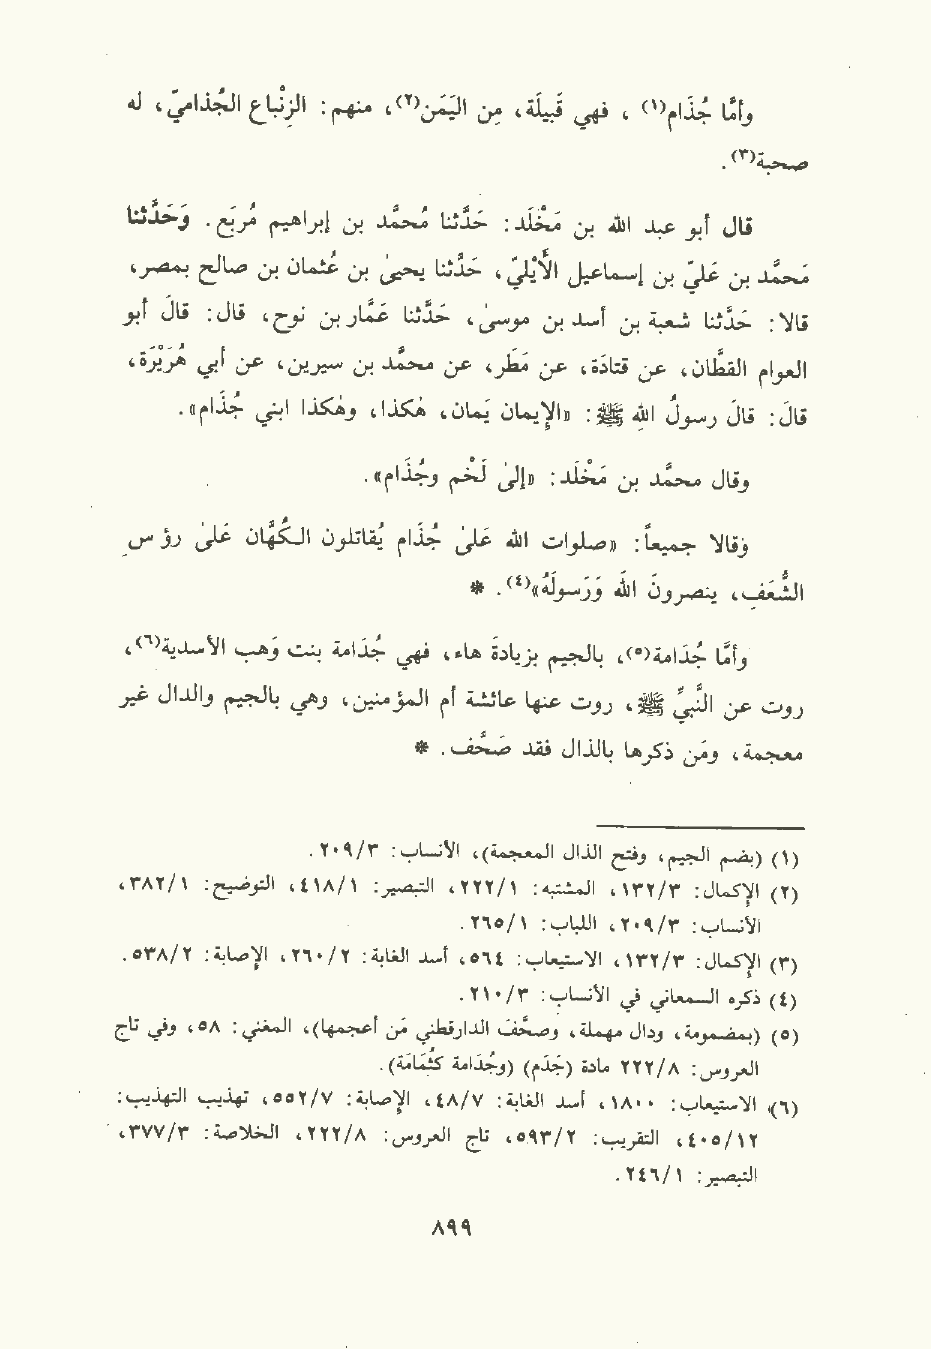 وأمّا جُذَام(١) ، فهي قَبيلَة، مِن اليَمَن(٢)، منهم: الزِنْباع الجُذاميّ، له
صحبة(٣).
قال أبو عبد الله بن مَخْلَد: حَدّثنا مُحمَّد بن إبراهيم مُربَع. وَحَدَّثنا
مَحمّد بن عَليّ بن إسماعيل الأَيْليّ، حَدّثنا يحيىٰ بن عُثمان بن صالح بمصر،
قالا: حَدّثنا شعبة بن أسد بن موسىٰ، حَدّثنا عَمّار بن نوح، قال: قالَ أبو
العوام القطّان، عن قتادَة، عن مَطَر، عن محمّد بن سيرين، عن أبي هُرَيْرَة،
قالَ: قالَ رسولُ اللهِ ﷺ: «الإيمان يَمان، هُكذا، وهُكذا ابني جُذَام».
وقال محمَّد بن مَخْلَد: «إلىٰ لَخْم وجُذَام».
وقالا جميعاً: «صلوات الله عَلىٰ جُذَام يُقاتلون الكُهَّان عَلىٰ رؤسِ
الشَّعَفِ، ينصرونَ اللهَ وَرَسولَهُ»(٤). *
وأمّا جُذَامة(٥)، بالجيم بزيادَة هاء، فهي جُذَامة بنت وَهب الأسدية(٦)،
روت عن النَّبيِّ ﷺ، روت عنها عائشة أم المؤمنين، وهي بالجيم والدال غير
معجمة، ومَن ذكرها بالذال فقد صَحَّفَ. *
(١) (بضم الجيم، وفتح الذال المعجمة)، الأنساب: ٢٠٩/٣.
(٢) الإكمال: ١٣٢/٣، المشتبه: ٢٢٢/١، التبصير: ٤١٨/١، التوضيح: ٣٨٢/١،
الأنساب: ٢٠٩/٣، اللباب: ٢٦٥/١.
(٣) الإكمال: ١٣٢/٣، الاستيعاب: ٥٦٤، أسد الغابة: ٢٦٠/٢، الإصابة: ٥٣٨/٢.
(٤) ذكره السمعاني في الأنساب: ٢١٠/٣.
(٥) (بمضمومة، ودال مهملة، وصحّفَ الدارقطني مَن أعجمها)، المغني: ٥٨، وفي تاج
العروس: ٢٢٢/٨ مادة (جَذَم) (وجُذَامة كَثُمَامَة).
(٦) الاستيعاب: ١٨٠٠، أسد الغابة: ٤٨/٧، الإصابة: ٥٥٢/٧، تهذيب التهذيب:
٤٠٥/١٢، التقريب: ٥٩٣/٢، تاج العروس: ٢٢٢/٨، الخلاصة: ٣٧٧/٣،
التبصير: ٢٤٦/١.
٨٩٩